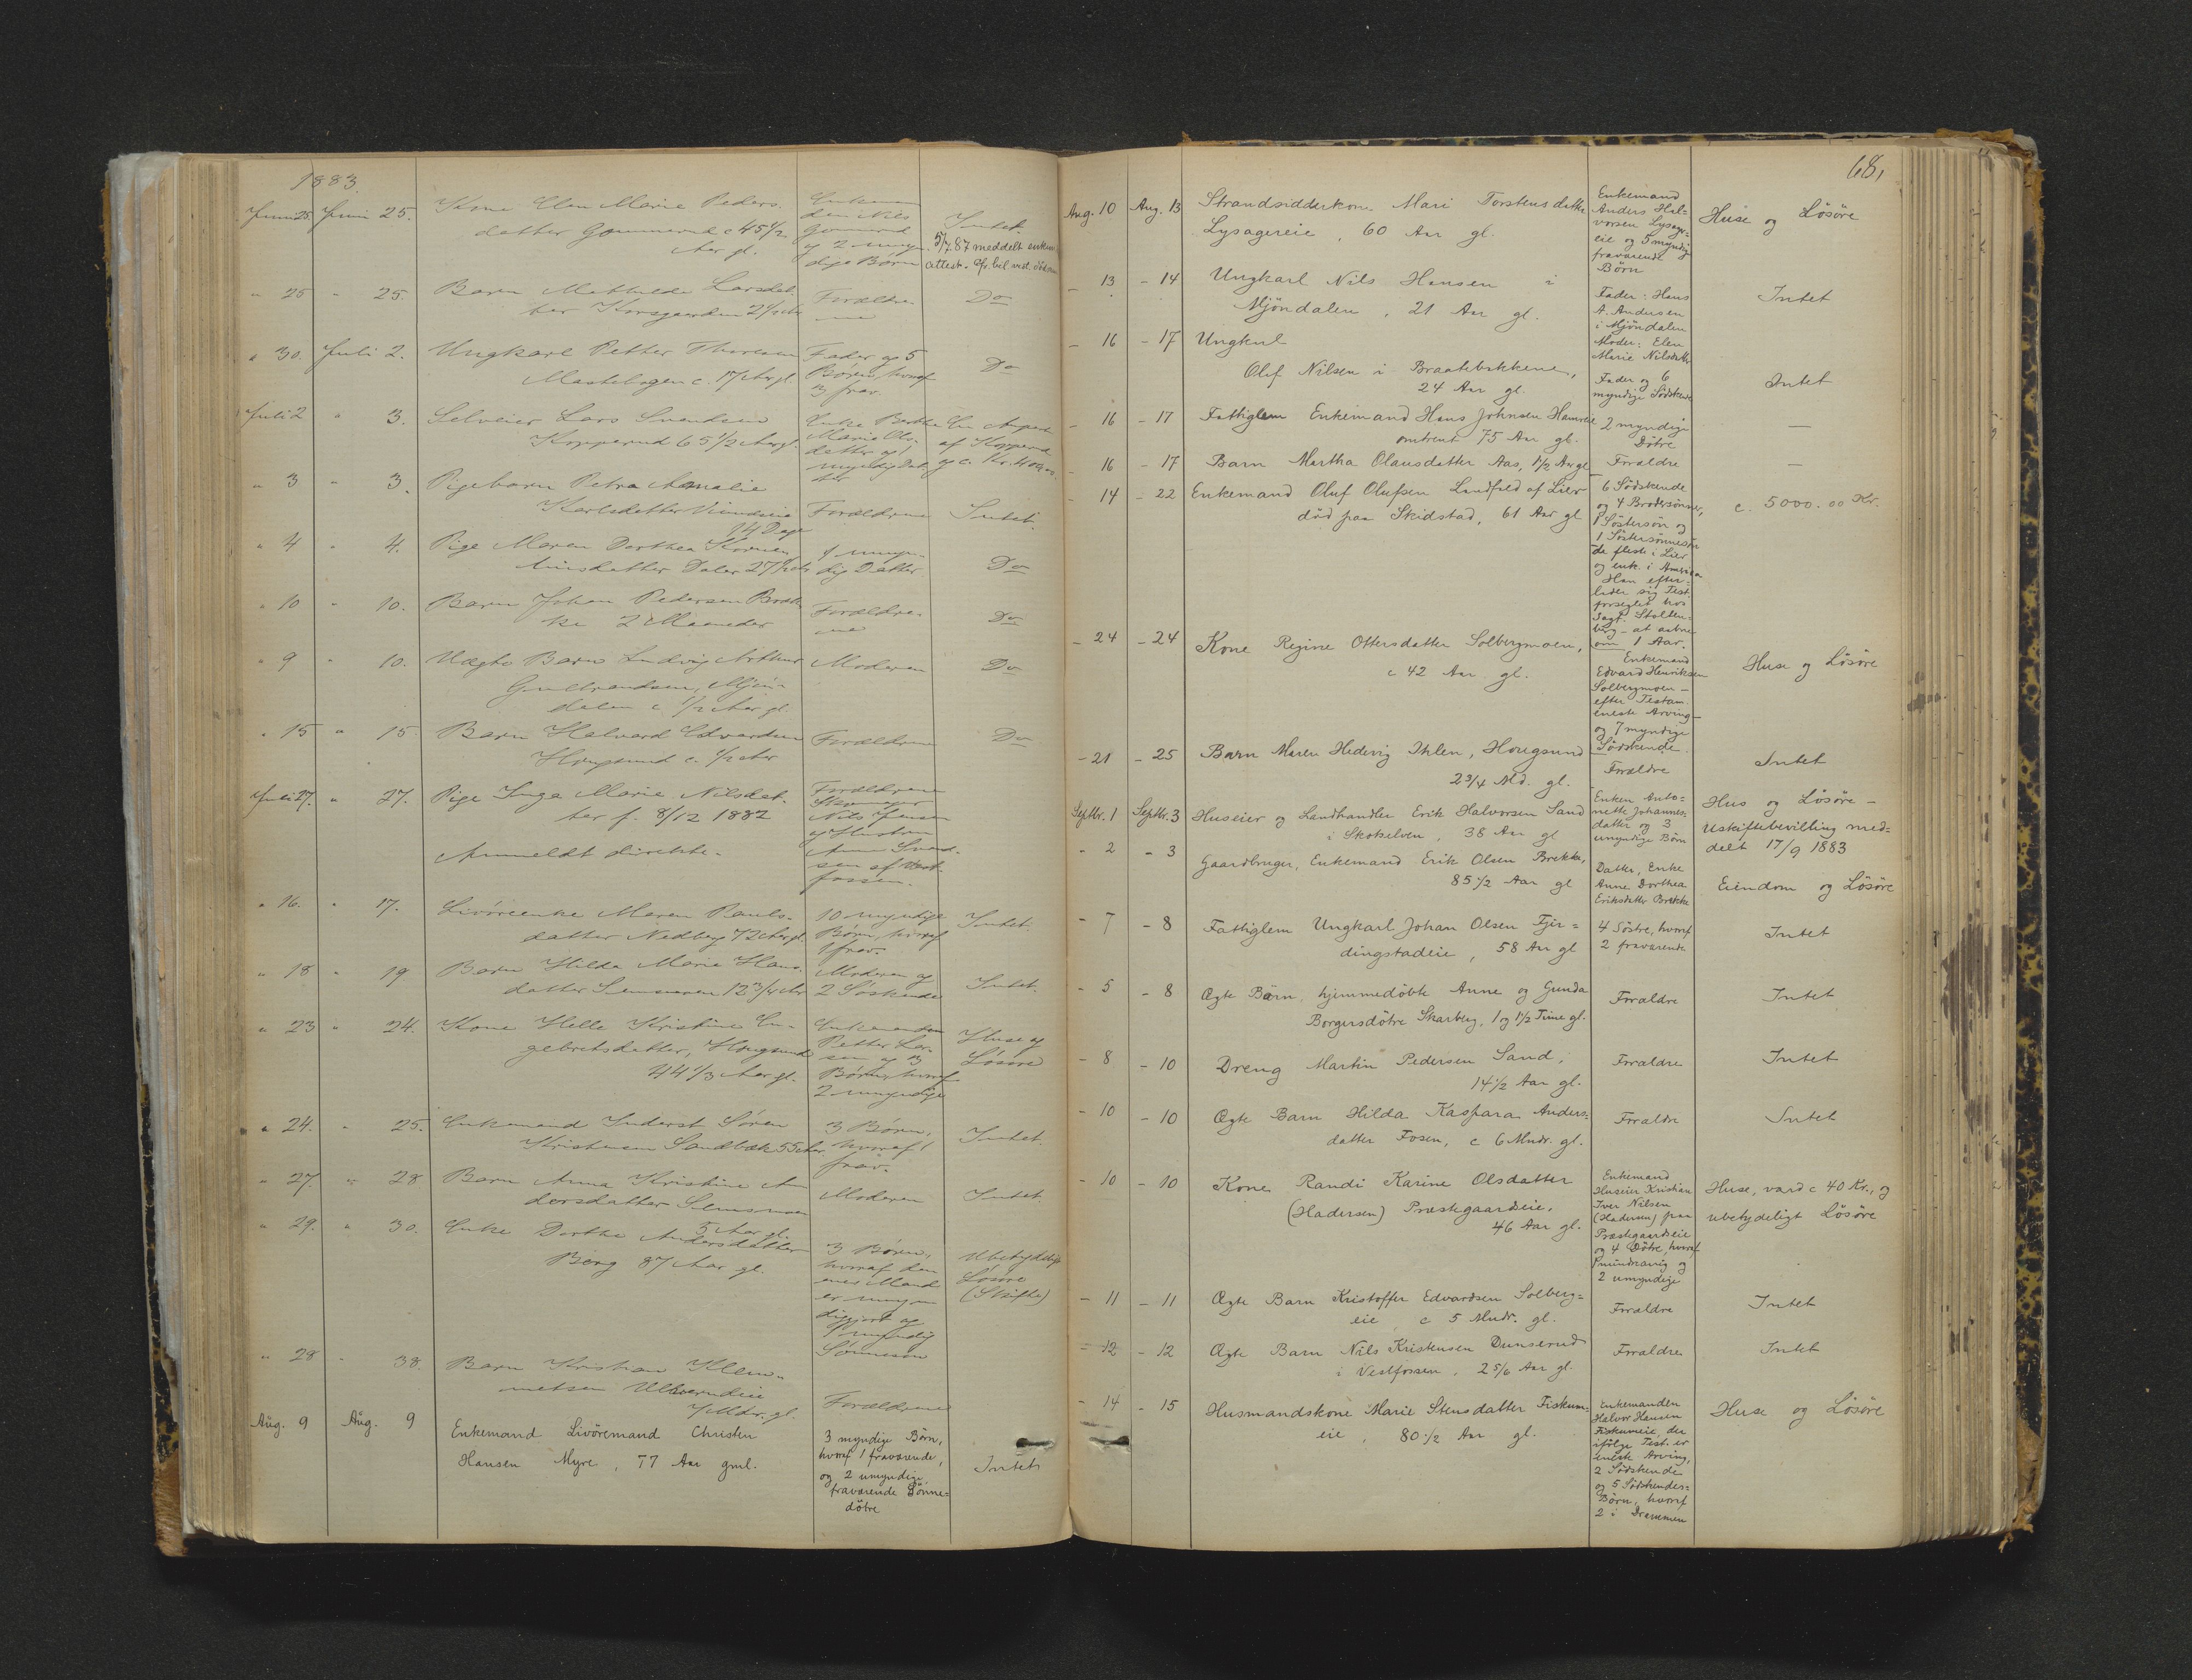 1883.
Juni 25. Juni 25. Kone Elen Marie Peders-
datter Gommerud c 45 1/2
Aar gl.
Enkeman
den Nils
Gommerud
og 2 umyn-
dige Børn
Intet.
5/7.87 meddelt
attest.
" 25 " 25. Barn Mathilde Larsdat-
ter Korsgaarden 2 1/2 Aar
Forældre
ne
Do
" 30. Juli 2. Ungkarl Petter Thoresen
c. 17 Aar gl.
Fader og 5
Børn, hvoraf
3 frav.
Do
Juli 2 " 3. Selveier Lars Svendsen
Kopperud 65 1/2 Aar gl.
Enke Berthe
Marie Ols-
datter og 1
myndig Dat-
ter
En Anpart
af Kopperud
og c. Kr. 400.00
" 3 " 3. Pigebarn Petra Amalie
Karlsdatter
14 Dage
Forældrene
Intet.
" 4 " 4. Pige Maren Dorthea
Daler 27 1/2 Aar
1 umyn-
dig Datter
Do
" 10 " 10. Barn Johan Pedersen Bræk-
ke 2 Maaneder
Forældre-
ne
Do
" 9 " 10. Uægte Barn Ludvig Arthur
Gulbrandsen, Mjøn-
dalen c 1/2 Aar gl.
Moderen
Do
" 15 " 15 Barn Halvard Edvardsen
Hougsund c. 1/2 Aar
Forældrene
Do
Juli 27. " 27. Pige Inga Marie Nilsdat-
ter f. 8/12 1882
Anmeldt direkte.
Forældrene
Nils Jensen
og Hustru
Anna Svend-
sen af Vest-
fossen.
" 16. " 17. Livøreenke Maren Pauls-
datter Nedberg 72 Aar gl.
10 myndige
Børn, hvoraf
1 frav.
Intet.
" 18 " 19 Barn Hilda Marie Hans-
datter Semsmoen 12 3/4 Aar
Moderen og
2 Søskende
Intet.
" 23 " 24. Kone Helle Kristine En-
gebretsdatter, Hougsund
44 1/3 Aar gl.
Enkemanden
Petter Lar-
sen og 3
Børn, hvoraf
2 umyndige
Huse og
Løsøre
" 24. " 25. Enkemand Inderst Søren
Kristensen Sandbæk 55 Aar
3 Børn,
hvoraf 1
frav.
Intet.
" 27. " 28 Barn Anna Kristine An
dersdatter Semsmoen
5 Aar gl.
Moderen
Intet
" 29. " 30. Enke Dorthe Andersdatter
Berg 87 Aar gl.
3 Børn,
hvoraf den
enes Mand
er umyn
diggjort og
1 myndig
Sønnesøn
Ubetydeligt
Løsøre
(Skifte)
" 28 " 38. Barn Kristian Klem-
metsen Ulverudeie
7 Mdr. gl.
Forældrene
Aug. 9 Aug. 9 Enkemand Livöremand Christen
Hansen Myre, 77 Aar gml.
3 myndige Börn,
hvoraf 1 fraværende,
og 2 umyndige,
fraværende Sönne-
dötre
Intet
68,
Aug. 10 Aug. 13 Strandsidderkone Mari Torstensdatter
Lysagereie, 60 Aar gl.
Enkemand
Anders Hal-
vorsen Lysager-
eie og 5 myndige
fraværende
Börn
Huse og Lösöre
- 13 - 14 Ungkarl Nils Hansen i
Mjöndalen, 21 Aar gl.
Fader: Hans
A. Andersen
i Mjöndalen
Moder: Elen
Marie Nilsdatter
Intet
- 16 - 17 Ungkarl
Olef Nilsen i Braatebakkene,
24 Aar gl.
Fader og 6
myndige Södskende
Intet
- 16 - 17 Fattiglem Enkemand Hans Johnsen
omtrent 75 Aar gl.
2 myndige
Dötre
—
- 16 - 17 Barn Martha Olausdatter Aas, 1 1/2 Aar gl
Forældre
—
- 14 - 22 Enkemand Oluf Olufsen Landfald af Lier
död paa Skidstad, 61 Aar gl
6 Södskende
og 4 Brodersönner,
1 Söstersön og
1 Söstersönnesön
de fleste i Lier
og enk. i Amerika
Han efter-
lader sig Test.
forseglet hos
Sagf. Stolten-
berg - at aabne
om 1 Aar.
c. 5000.00 Kr.
- 24 - 24 Kone Regine Ottersdatter Solbergmoen,
c 42 Aar gl.
Enkemand
Edvard Henriksen
Solbergmoen -
efter Testam.
eneste Arving -
og 7 myndige
Södskende.
Huse og Lösöre
- 21 - 25 Barn Maren Hedevig Ihlen, Hougsund
2 3/4 Md. gl.
Forældre
Intet
Septbr. 1 Septbr. 3 Huseier og Landhandler Erik Halvorsen Sand
i Skotselven, 38 Aar gl
Enken Anto-
nette Johannes-
datter og 3
umyndige Börn
Hus og Lösöre -
Uskiftebevilling med-
delt 17/9 1883
- 2 - 3 Gaardbruger, Enkemand Erik Olsen Brekke,
85 1/2 Aar gl
Datter, Enke
Anne Dorthea
Eriksdatter Brekke
Eiendom og Lösöre
- 7 - 8 Fattiglem Ungkarl Johan Olsen Fjer-
dingstadeie, 58 Aar gl
4 Söstre, hvoraf
2 fraværende
Intet
- 5 - 8 Ægte Börn, hjemmedöbte Anne og Gunda
Borgersdötre Skarberg, 1 og 1 1/2 Time gl.
Forældre
Intet
- 8 - 10 Dreng Martin Pedersen Sand,
14 1/2 Aar gl.
Forældre
Intet
- 10 - 10 Ægte Barn Hilda Kaspara Anders-
datter Fosen, c 6 Mndr. gl.
Forældre
Intet
- 10 - 10 Kone Randi Karine Olsdatter
(Hadersen) Præstegaardseie,
46 Aar gl.
Enkemand
Huseier Kristian
Iver Nilsen
(Hadersen) paa
Præstegaardseie
og 4 Dötre, hvoraf
1 mindreaarig og
2 umyndige
Huse, værd c 40 Kr., og
ubetydeligt Lösöre
- 11 - 11 Ægte Barn Kristoffer Edvardsen Solberg-
eie c 5 Mndr. gl.
Forældre
Intet
- 12 - 12 Ægte Barn Nils Kristensen Dunserud
i Vestfossen, 2 5/6 Aar gl.
Forældre
Intet
- 14 - 15 Husmandskone Marie Stensdatter Fiskum-
eie, 80 1/2 Aar gl.
Enkemanden
Halvor Hansen
Fiskumeie, der
ifölge Test. er
eneste Arving,
2 Södskende
og 5 Södskendes-
Börn, hvoraf
2 i Drammen
Huse og Lösöre